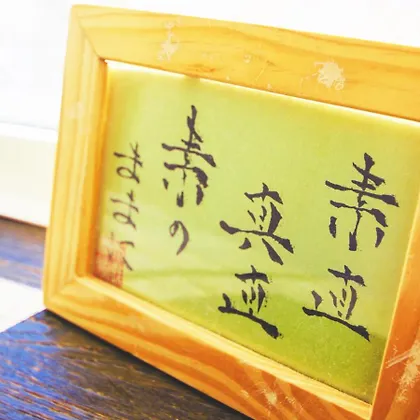 素直
真直
素の
まままで